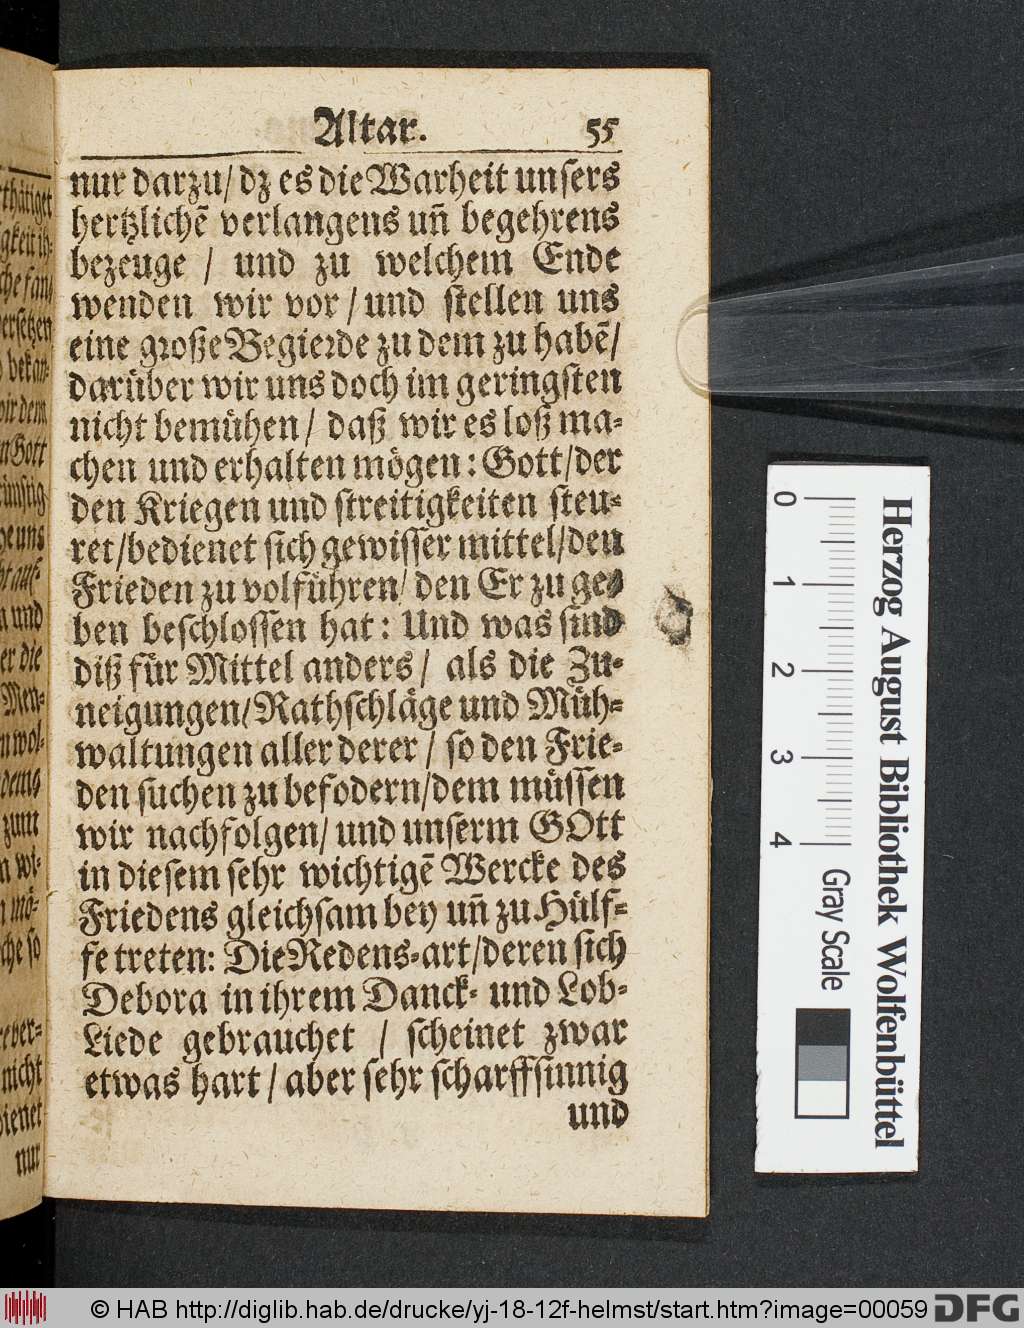 Altar. 55
nur darzu/ dz es die Warheit unsers
hertzlichẽ verlangens uñ begehrens
bezeuge / und zu welchem Ende
wenden wir vor / und stellen uns
eine große Begierde zu dem zu habẽ/
darüber wir uns doch im geringsten
nicht bemühen / daß wir es loß ma-
chen und erhalten mögen: Gott/der
den Kriegen und streitigkeiten steu-
ret/bedienet sich gewisser mittel/den
Frieden zu volführen/ den Er zu ge-
ben beschlossen hat: Und was sind
diß für Mittel anders / als die Zu-
neigungen/Rathschläge und Müh-
waltungen aller derer / so den Frie-
den suchen zu befodern/dem müssen
wir nachfolgen/ und unserm GOtt
in diesem sehr wichtigẽ Wercke des
Friedens gleichsam bey uñ zu Hülf-
fe treten: Die Redens-art/deren sich
Debora in ihrem Danck- und Lob-
Liede gebrauchet / scheinet zwar
etwas hart / aber sehr scharffsinnig
und
thätiget
gkeit ih-
che fan-
ersetzen
bekan-
wir dem
n Gott
ünstig
he uns
ht auf-
a und
er die
Men-
n wol-
dems
zum
n wi-
mö-
che so
e ver-
nicht
dienet
nur
0 1 2 3 4
Gray Scale
Herzog August Bibliothek Wolfenbüttel
© HAB http://diglib.hab.de/drucke/yj-18-12f-helmst/start.htm?image=00059 DFG